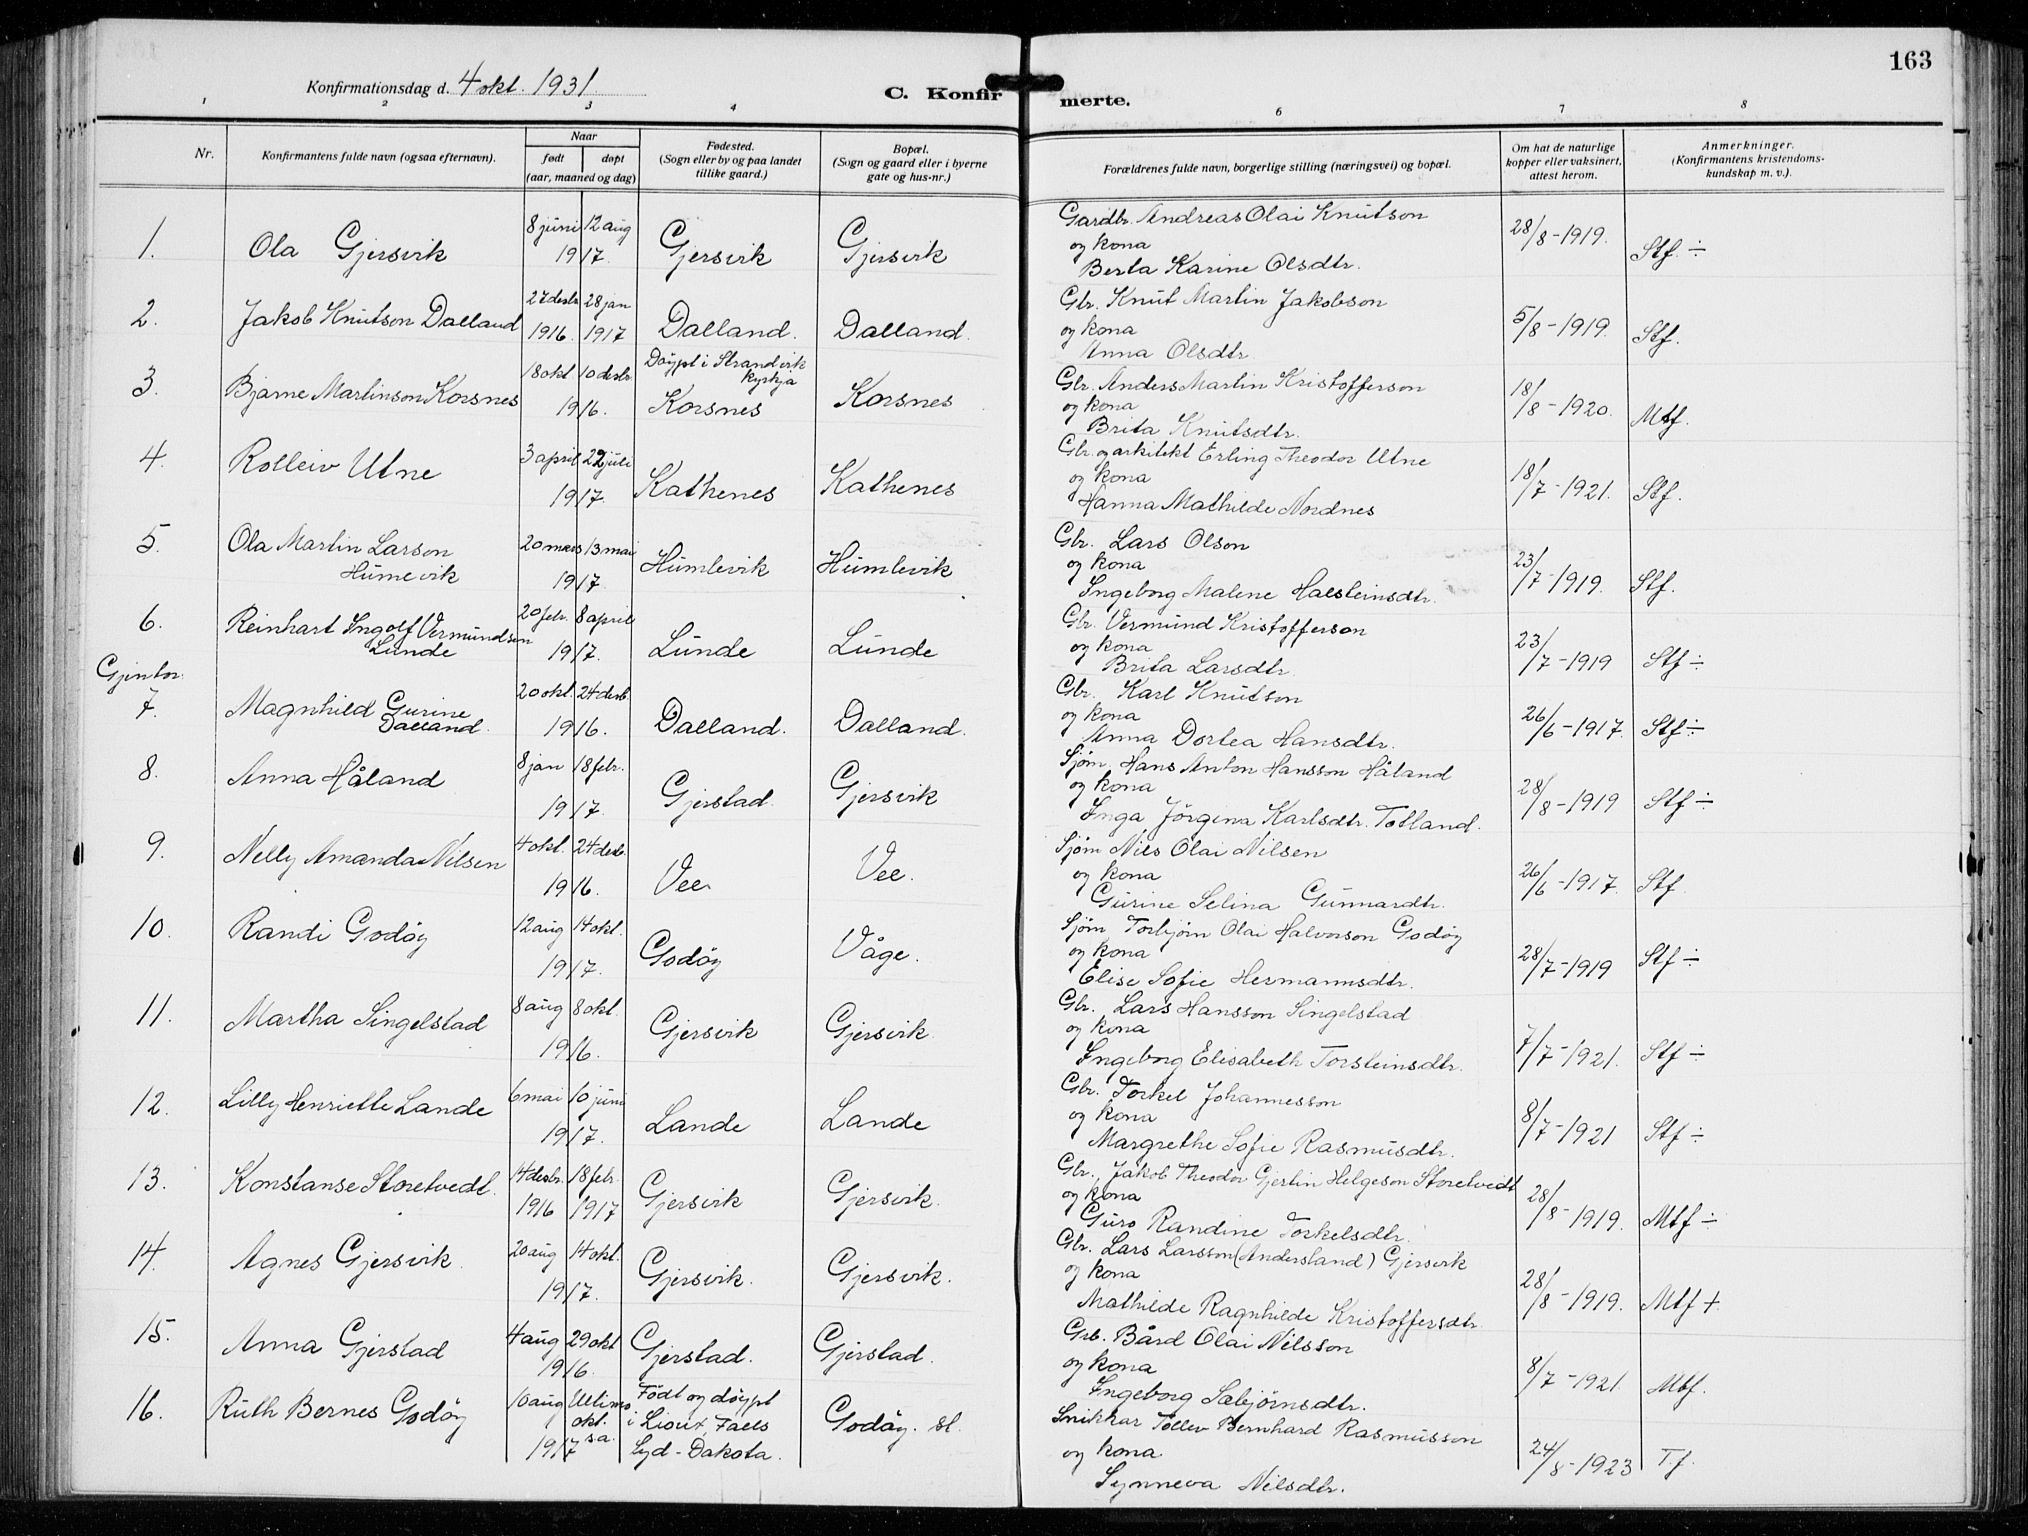 163
Konfirmationsdag d. 4 okt. 1931.
C. Konfirmerte.
1 2 3 4 6 7 8
Nr.
Konfirmantens fulde navn (ogsaa efternavn).
Naar
født døpt
(aar, maaned og dag)
Fødested.
(Sogn eller by og paa landet
tillike gaard.)
Bopæl.
(Sogn og gaard eller i byerne
gate og hus-nr.)
Forældrenes fulde navn, borgerlige stilling (næringsvei) og bopæl.
Om hat de naturlige
kopper eller vaksinert,
attest herom.
Anmerkninger.
(Konfirmantens kristendoms-
kundskap m. v.).
8 juni 12 aug Gardbr. Andreas Olai Knutson
1. Ola Gjersvik 1917. Gjersvik Gjersvik og kona 28/8-1919. Stf. ÷
Berta Karine Olsdtr.
27 desbr 28 jan Gbr. Knut Martin Jakobson
2. Jakob Knutson Dalland 1916. 1917 Dalland. Dalland. og kona 5/8-1919. Stf.
Anna Olsdtr
18 okt 10 desbr. Döypt i Strandvik kyrkja Gbr. Anders Martin Kristofferson
3. Bjarne Martinson Korsnes 1916. Korsnes Korsnes og kona 18/8-1920. Mtf.
Brita Knutsdtr.
3 april 22 juli Gbr. og arkitekt Erling Theodor Utne
4. Rolleiv Utne 1917. Kathenes Kathenes og kona 18/7-1921. Stf.
Hanna Mathilde Nordnes
5. Ola Martin Larson 20 mars 13 mai Gbr. Lars Olson
Humevik 1917. Humlevik Humlevik og kona 23/7-1919. Stf.
Ingeborg Malene Halsteinsdtr.
6. Reinhart Ingolf Vermundsen 20 febr. 8 april Gbr. Vermund Kristofferson
Lunde 1917. Lunde Lunde og kona 23/7-1919 Stf ÷
Brita Larsdtr.
Gjentor.
7. Magnhild Gurine 20 okt. 24 desb. Gbr. Karl Knutson
Dalland. 1916. Dalland. Dalland. og kona 26/6-1917. Stf ÷
Anna Dortea Hansdtr.
8. Anna Håland 8 jan 18 febr. Sjöm. Hans Anton Hansson Håland
1917. Gjerstad. Gjersvik og kona 28/8-1919 Stf ÷
Inga Jörgina Karlsdtr. Totland.
9. Nelly Amanda Nilsen 4 okt. 24 desb. Sjöm Nils Olai Nilsen
1916. Vee Vee. og kona 26/6-1917. Stf.
Gurine Selina Gunnardtr.
10. Randi Godöy 12 aug 14 okt. Sjöm Torbjörn Olai Halvorson Godöy
1917. Godöy Våge. og kona 28/7-1919 Stf ÷
Elise Sofie Hermannsdtr.
11. Martha Singelstad 8 aug 8 okt. Gbr. Lars Hansson Singelstad
1916. Gjersvik Gjersvik og kona 7/7-1921. Stf ÷
Ingeborg Elisabeth Torsteinsdtr.
12. Lilly Henriette Lande 6 mai 10 juni Gbr. Torkel Johannesson
1917. Lande Lande og kona 8/7-1921 Stf ÷
Margrethe Sofie Rasmusdtr.
13. Konstanse Storetvedt. 14 desbr. 18 febr. Gbr. Jakob Theodor Gjertin Helgeson Storetvedt
1916 1917 Gjersvik Gjersvik. og kona 28/8-1919. Mtf ÷
Guro Randine Torkelsdtr.
14. Agnes Gjersvik. 20 aug 14 okt. Gbr. Lars Larsson (Andersland) Gjersvik
1917. Gjersvik. Gjersvik. og kona 28/8-1919. Mtf +
Mathilde Ragnhilde Kristoffersdtr.
15. Anna Gjerstad 4 aug 29 okt Grb. Bård Olai Nilsson
1916. Gjerstad. Gjerstad. og kona 8/7-1921 Mtf.
Ingeborg Sæbjörnsdtr.
16. Ruth Bernes Godöy 10 aug Ultimo okt. s.a. Födt og döypt Snikkar Tollev Bernhard Rasmusson
1917 i Lioux Falls Godöy. st. og kona 24/8-1923 T.f.
Syd-Dakota. Synneva Nilsdtr.